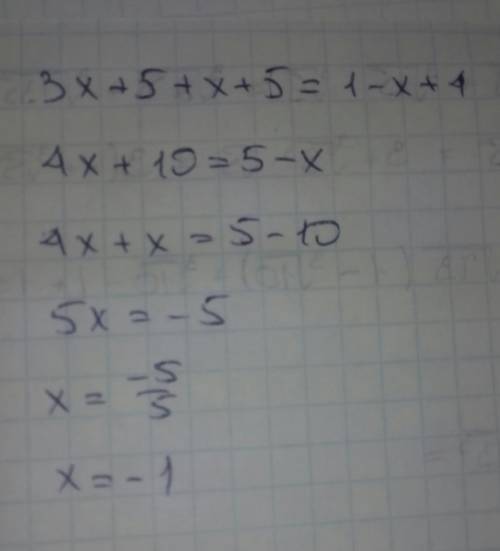 3x+5+x+5=1-x+4
4x+10=5-x
4x+x=5-10
5x=-5
x=\frac{-5}{5}
x=-1